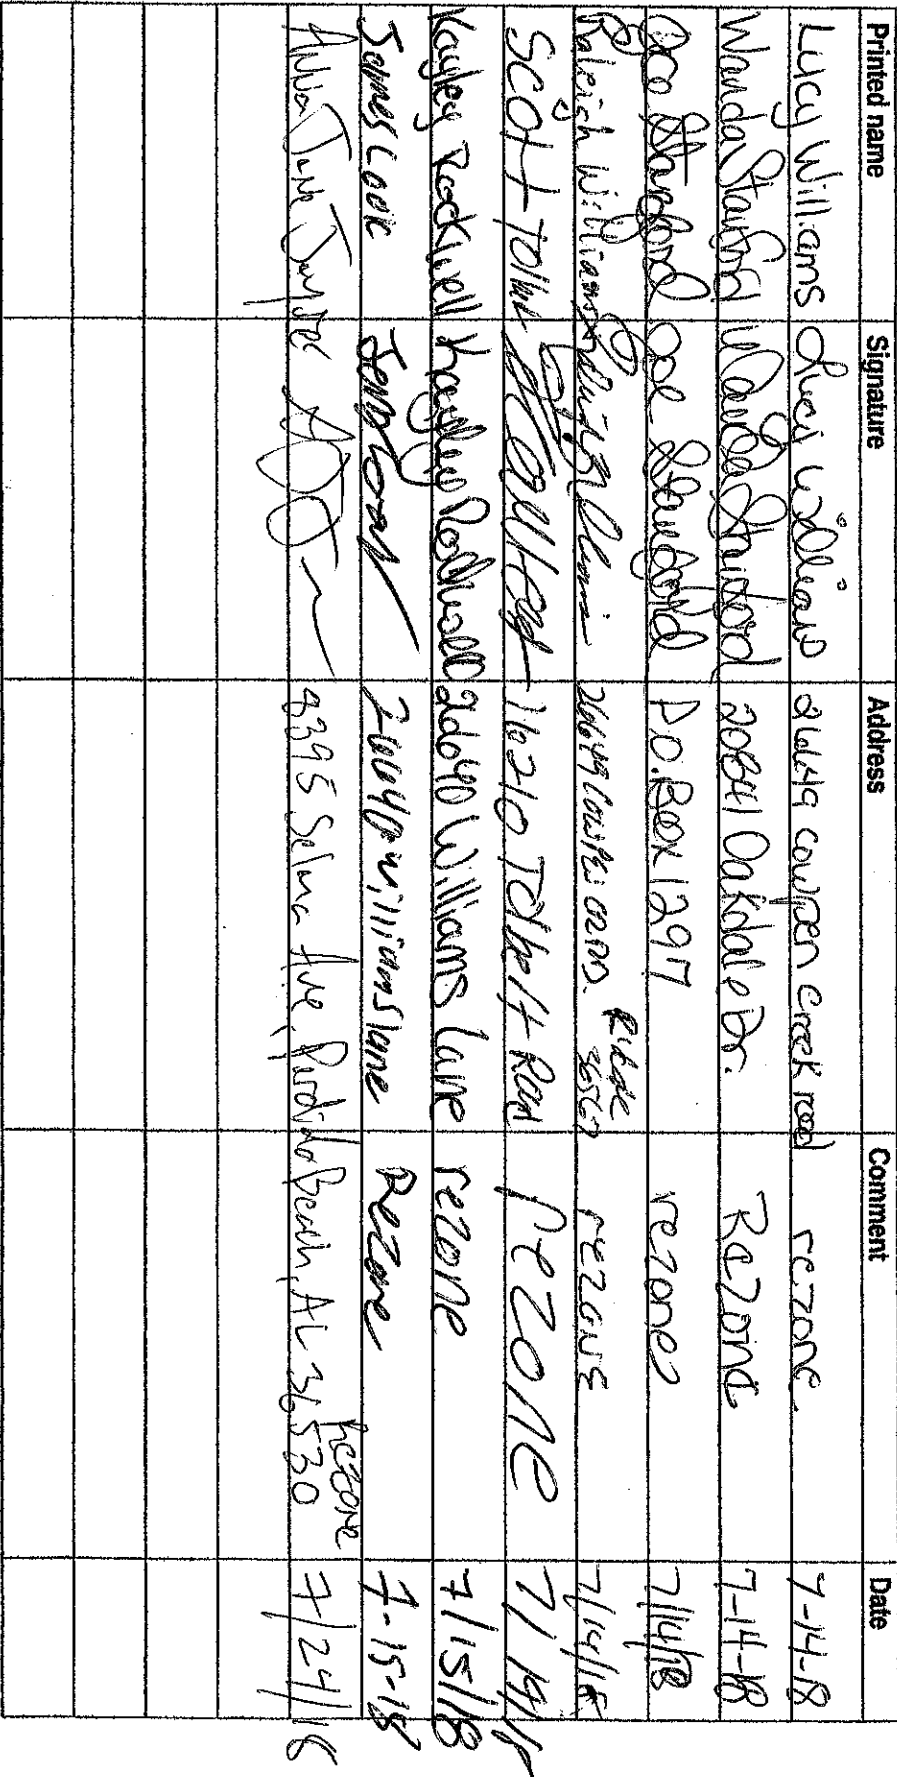 Printed name Signature Address Comment Date
Lucy Williams Lucy Williams 26649 cowpen creek road rezone. 7-14-18
Wanda Stanford Wanda Stanford 20841 Oakdale Dr. Rezone 7-14-18
Joe Stanford Joe Stanford P.O. Box 1297 rezone 7/14/18
Raleigh Williams 26649 rezone 7/14/18
Scott 16210 Road rezone 7/14/18
Kayley Rockwell Kayley Rockwell 26640 Williams lane rezone 7/15/18
James Cook 26640 williams lane Rezone 7-15-18
Anna Jane 8395 Selma Ave, Perdido Beach, AL 36530 Rezone 7/24/18